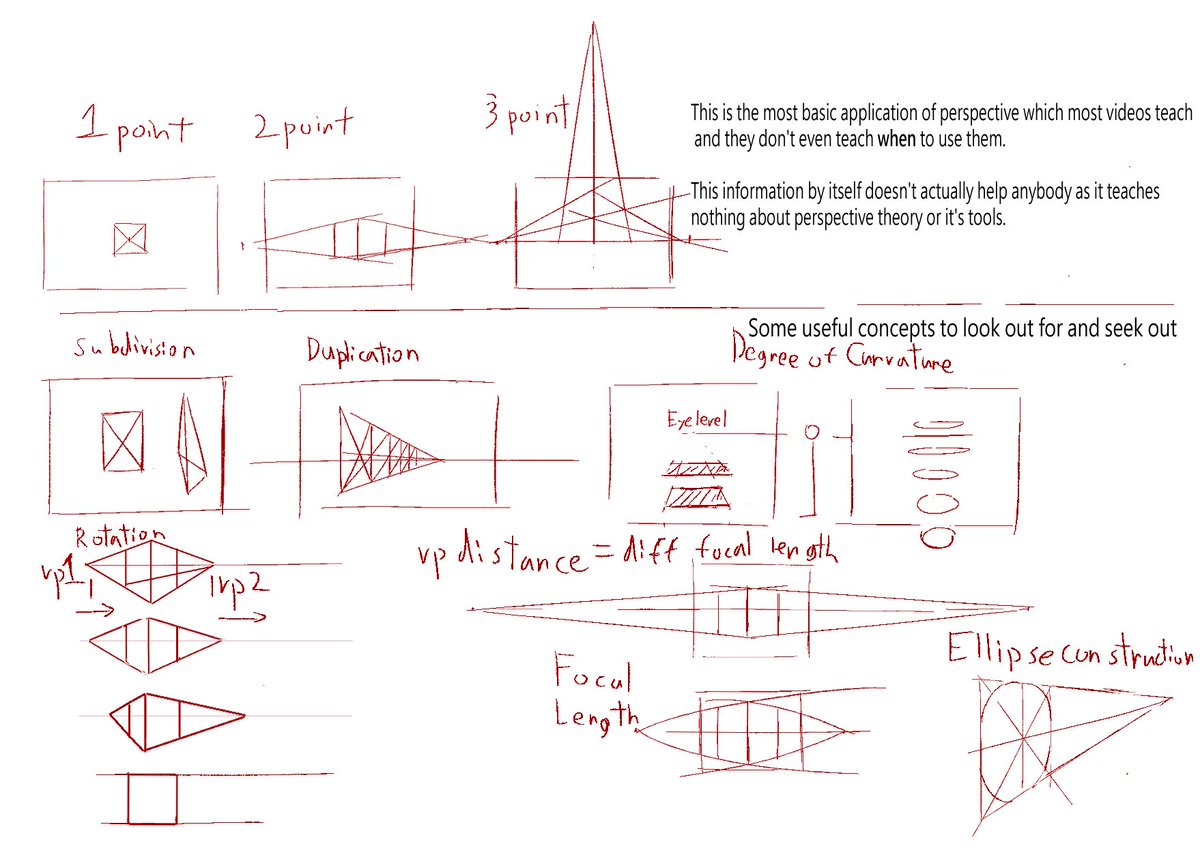 1 point
2 point
3 point
This is the most basic application of perspective which most videos teach
and they don't even teach when to use them.
This information by itself doesn't actually help anybody as it teaches
nothing about perspective theory or it's tools.
Some useful concepts to look out for and seek out
Subdivision
Duplication
Degree of Curvature
Eyelevel
Rotation
vp1
vp2
vp distance = diff focal length
Focal
Length
Ellipse construction